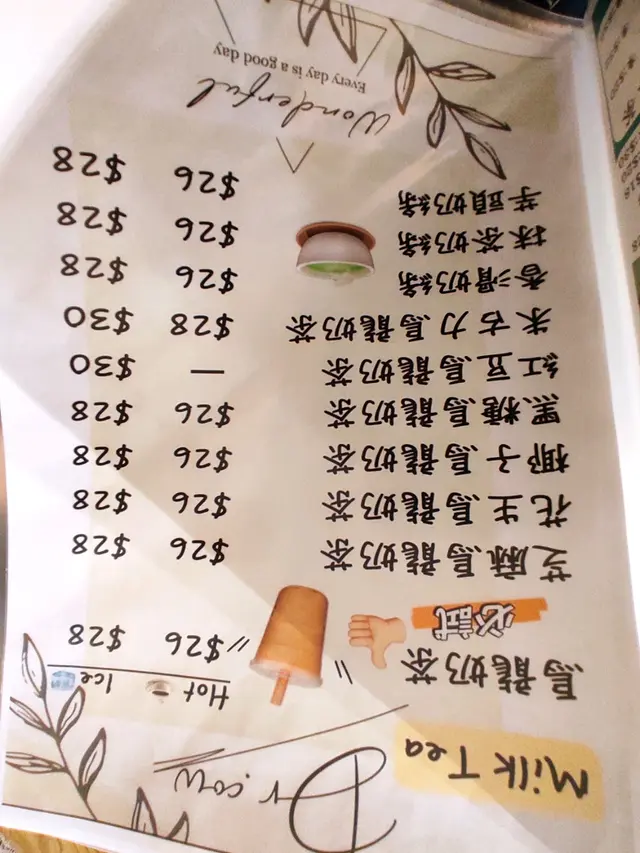 Dr.cow
Milk Tea
Hot Ice
烏龍奶茶 $26 $28
必試
芝麻烏龍奶茶 $26 $28
花生烏龍奶茶 $26 $28
椰子烏龍奶茶 $26 $28
黑糖烏龍奶茶 $26 $28
紅豆烏龍奶茶 — $30
朱古力烏龍奶茶 $28 $30
香滑奶綠 $26 $28
抹茶奶綠 $26 $28
芋頭奶綠 $26 $28
Wonderful
Every day is a good day